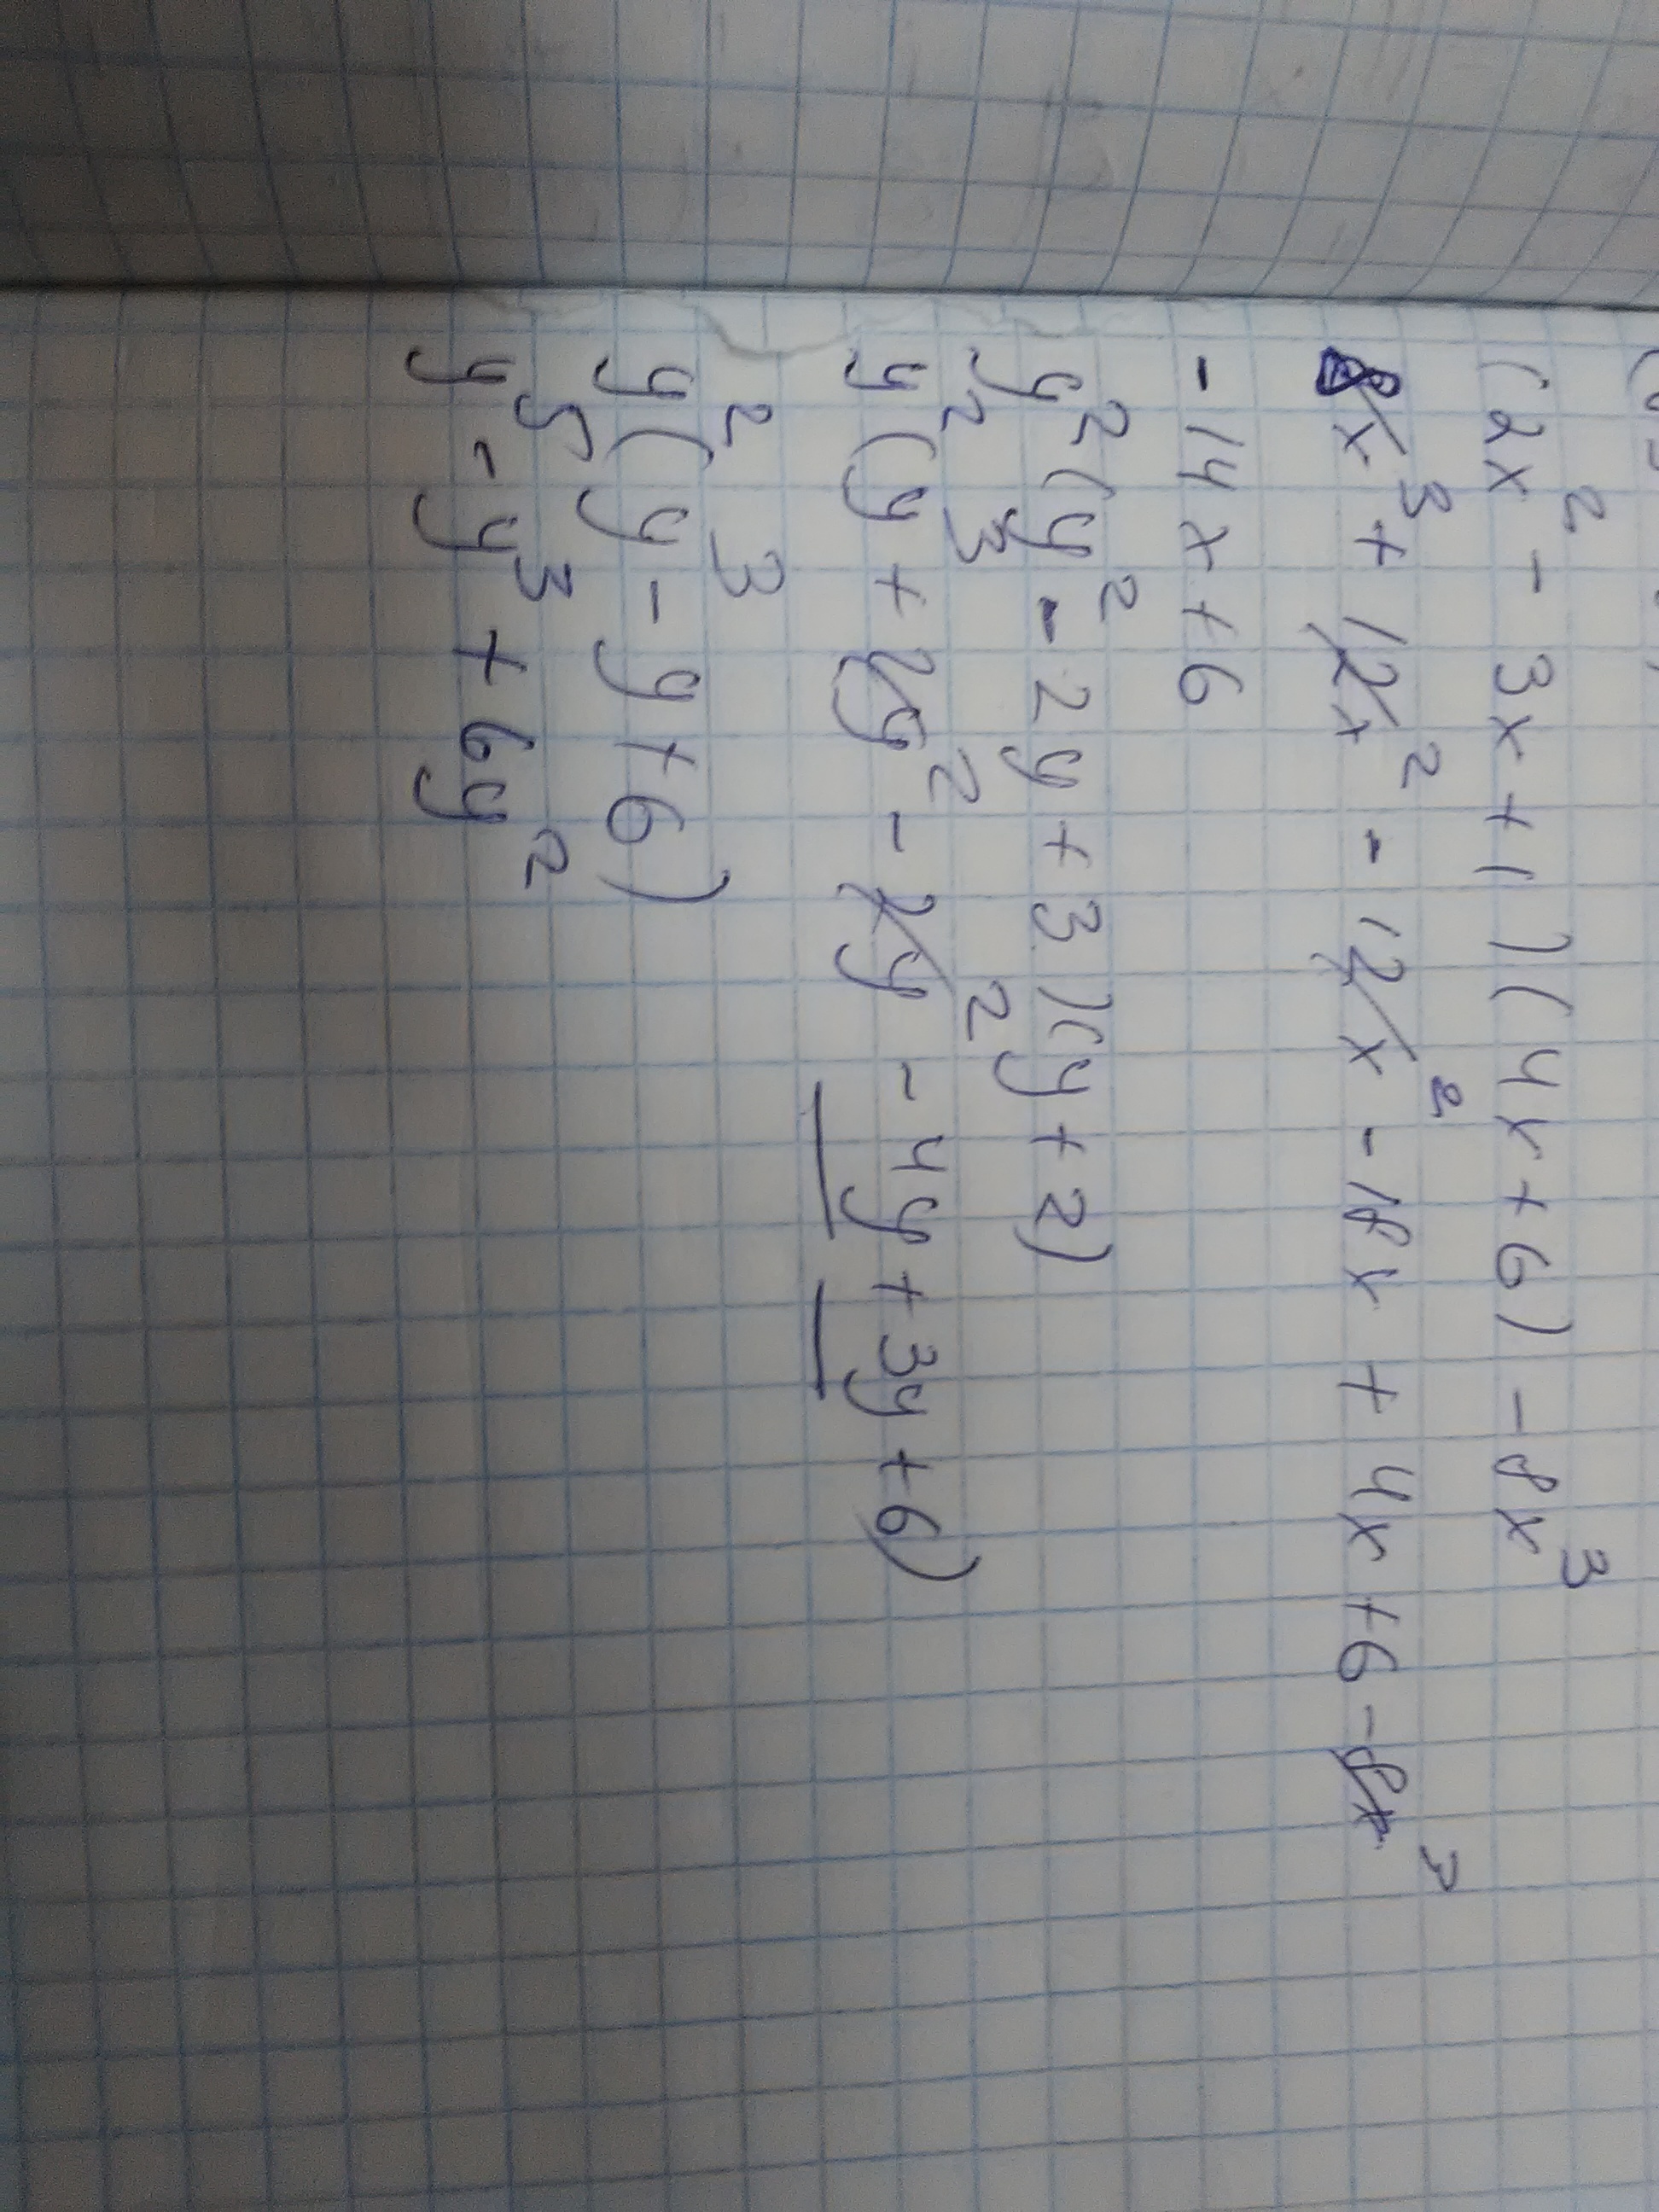 (2x² - 3x + 1)(4x + 6) - 8x³
8x³ + 12x² - 12x² - 18x + 4x + 6 - 8x³
- 14x + 6
y²(y² - 2y + 3)(y + 2)
y²(y³ + 2y² - 2y² - 4y + 3y + 6)
y²(y³ - y + 6)
y⁵ - y³ + 6y²